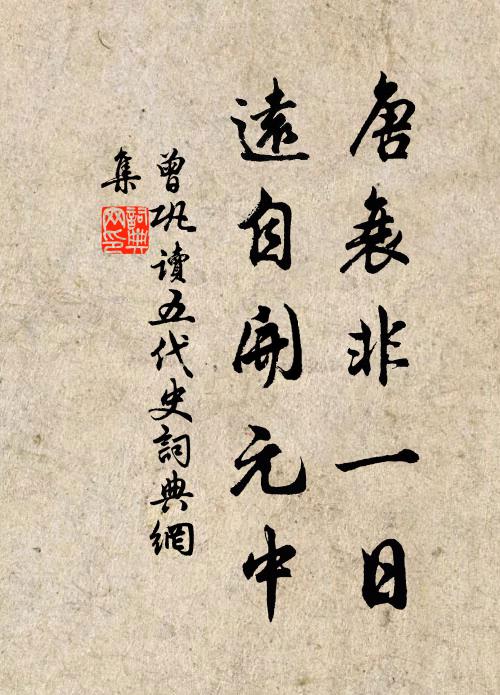 唐衰非一日
遠自開元中
曾巩讀五代史詞典網
集
詞典網印